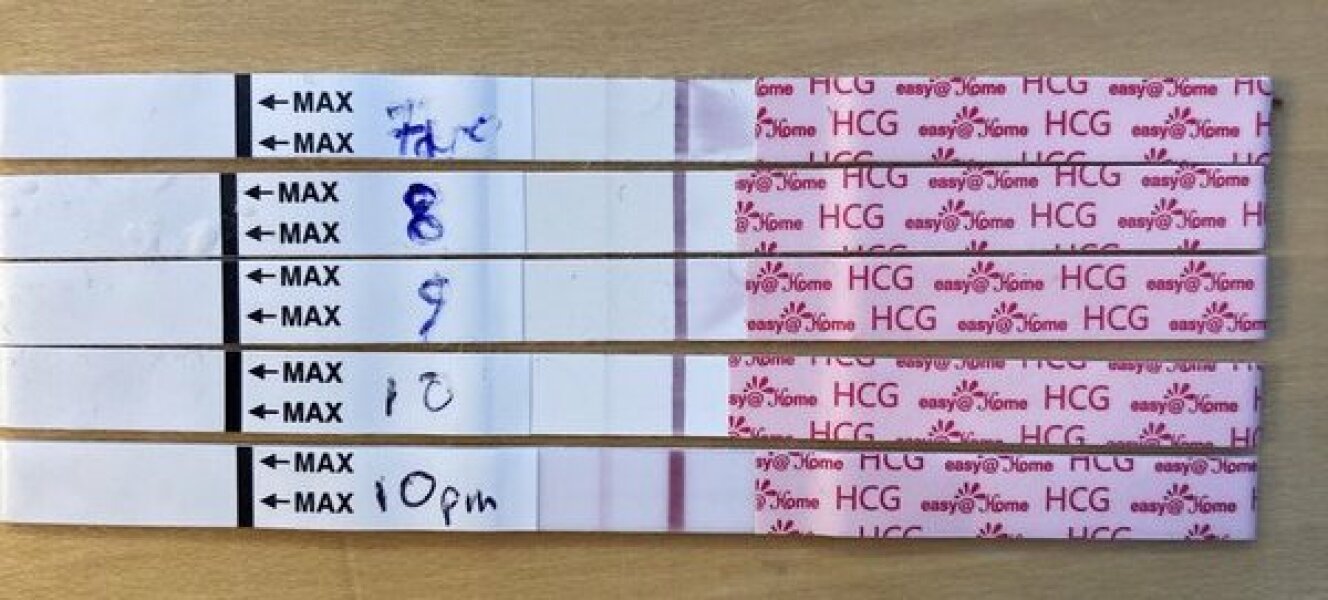 ←MAX HCG easy@Home HCG easy@Home HC
←MAX Home HCG easy@Home HCG easy@Home H
HCG HCG
←MAX sy@Home HCG easy@Home HCG easy@Home
8
←MAX @Home HCG easy@Home HCG easy@Home H
←MAX sy@Home HCG easy@Home HCG easy@Home
9
←MAX easy@Home HCG easy@Home HCG easy@Home
←MAX Home HCG easy@Home HCG
10 sy@Home HCG easy@Home HCG easy@Home
←MAX HCG HCG HC
←MAX sy@Home HCG easy@Home HCG easy@Home
←MAX 10pm @Home HCG easy@Home HCG easy@Home
HCG HCG